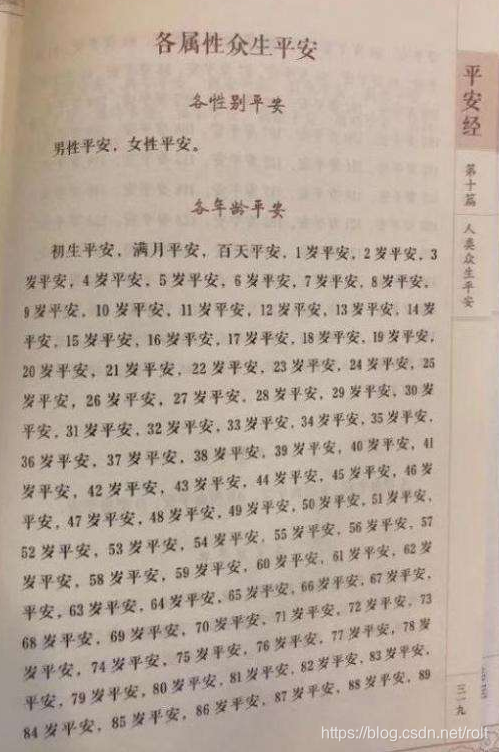 各属性众生平安
各性别平安
男性平安，女性平安。
各年龄平安
初生平安，满月平安，百天平安，1岁平安，2岁平安，3
岁平安，4岁平安，5岁平安，6岁平安，7岁平安，8岁平安，
9岁平安，10岁平安，11岁平安，12岁平安，13岁平安，14岁
平安，15岁平安，16岁平安，17岁平安，18岁平安，19岁平安，
20岁平安，21岁平安，22岁平安，23岁平安，24岁平安，25
岁平安，26岁平安，27岁平安，28岁平安，29岁平安，30岁
平安，31岁平安，32岁平安，33岁平安，34岁平安，35岁平安，
36岁平安，37岁平安，38岁平安，39岁平安，40岁平安，41
岁平安，42岁平安，43岁平安，44岁平安，45岁平安，46岁
平安，47岁平安，48岁平安，49岁平安，50岁平安，51岁平安，
52岁平安，53岁平安，54岁平安，55岁平安，56岁平安，57
岁平安，58岁平安，59岁平安，60岁平安，61岁平安，62岁
平安，63岁平安，64岁平安，65岁平安，66岁平安，67岁平安，
68岁平安，69岁平安，70岁平安，71岁平安，72岁平安，73
岁平安，74岁平安，75岁平安，76岁平安，77岁平安，78岁
平安，79岁平安，80岁平安，81岁平安，82岁平安，83岁平安，
84岁平安，85岁平安，86岁平安，87岁平安，88岁平安，89
平安经
第十篇
人类众生平安
三一九
https://blog.csdn.net/rolt